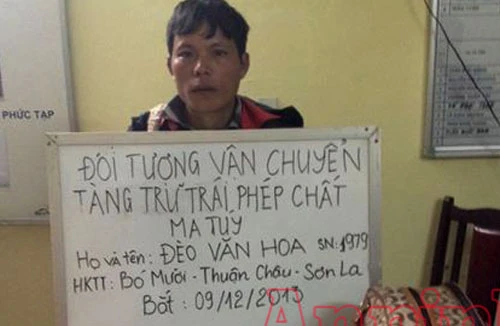 PHỨC TẠP
ĐỐI TƯỢNG VẬN CHUYỂN
TÀNG TRỮ TRÁI PHÉP CHẤT
MA TÚY
Họ và tên: ĐÈO VĂN HOA SN: 1979
HKTT: Bó Mười - Thuận Châu - Sơn La
Bắt: 09/12/2013